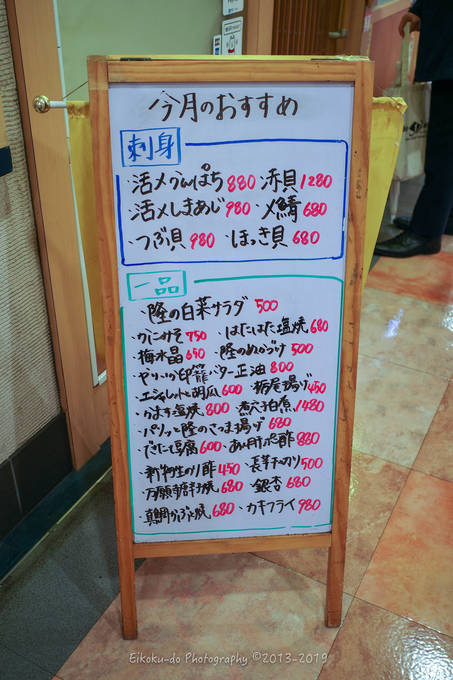 今月のおすすめ
刺身
・活〆かんぱち 880 ・赤貝 1280
・活〆しまあじ 980 ・〆鯖 680
・つぶ貝 980 ・ほっき貝 680
一品
・隆の白菜サラダ 500
・かにみそ 750 ・はたはた塩焼 680
・梅水晶 650 ・隆のぬかづけ 500
・ヤリイカ印籠バター正油 800
・エシャレットと胡瓜 600 ・栃尾揚げ 450
・かます塩焼 800 ・煮穴子白煮 1480
・パリッと隆のさつま揚げ 680
・だだ豆腐 600 ・あん肝ポン酢 880
・新物生のり酢 450 ・長芋千切り 500
・万願寺唐辛子焼 680 ・銀杏 680
・真鯛かぶと焼 680 ・カキフライ 980
Eikoku-do Photography ©2013-2019